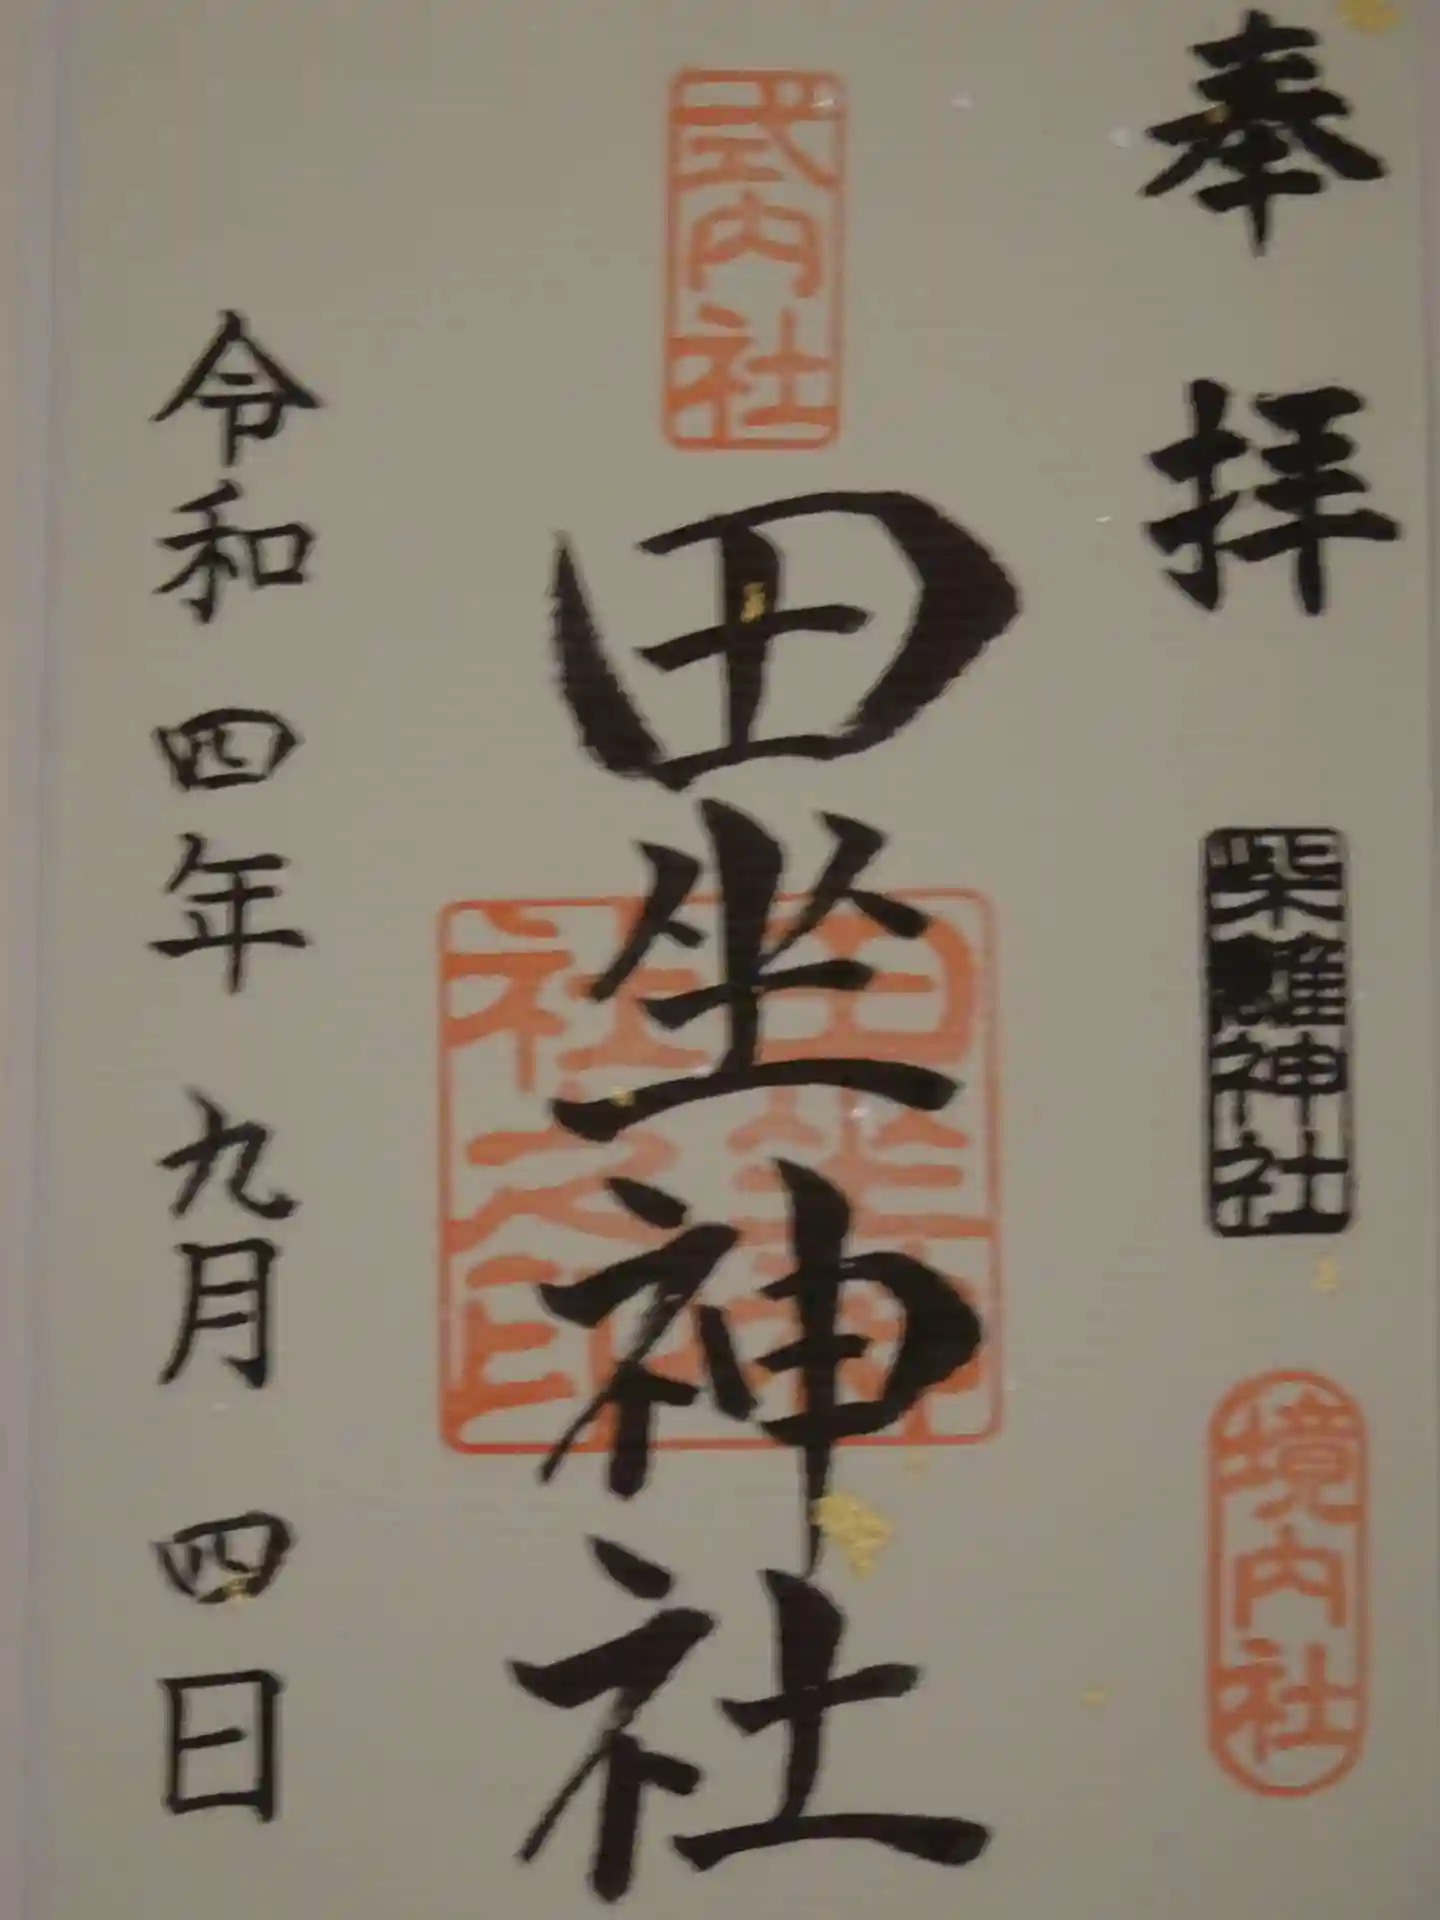 奉拝
柴籬神社
境内社
式内社
田坐神社
田坐神社之印
令和四年九月四日